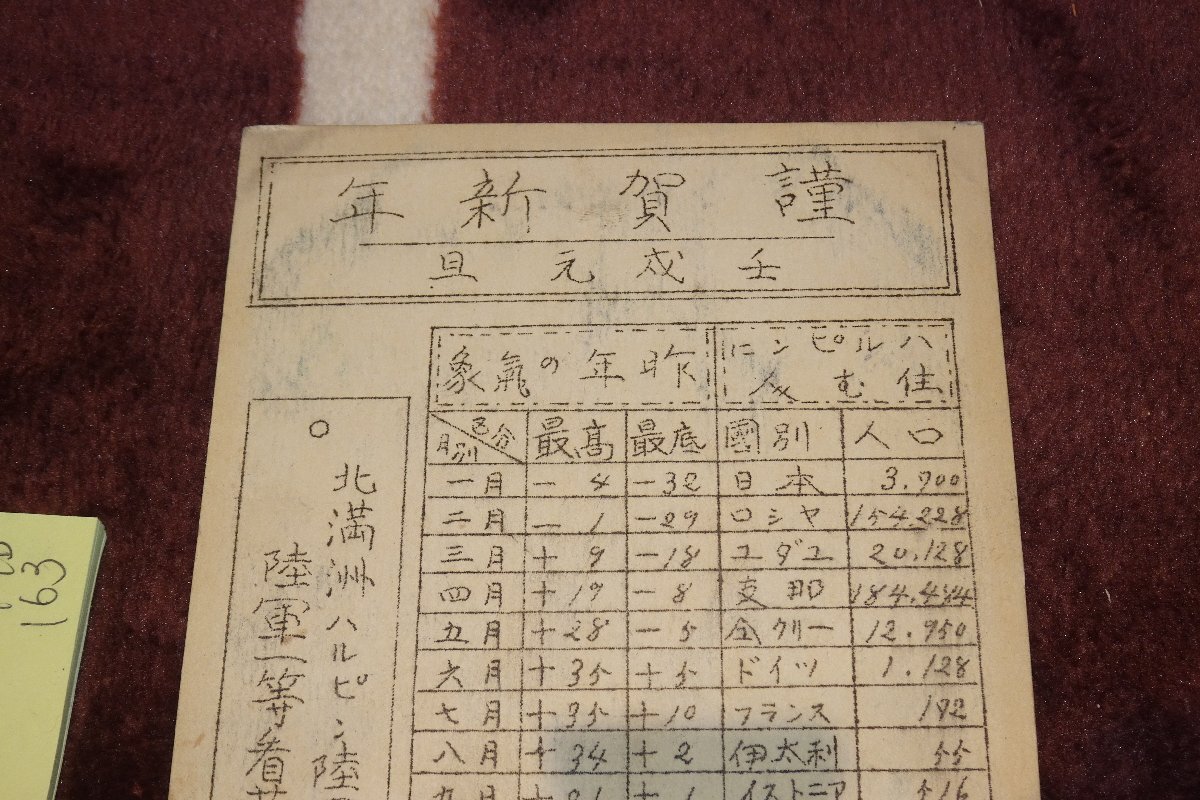 謹賀新年
壬戌元旦
ハルピンニ
住む人々
昨年の気象
人口 國別 最底 最高 区分 月別
一月 − 4 −32 日本 3.900
二月 − 1 −29 ロシヤ 154.228
三月 + 9 −18 ユダユ 20.128
四月 +19 − 8 支那 184.484
五月 +28 − 5 仝クリー 12.950
六月 +35 + 5 ドイツ 1.128
七月 +35 +10 フランス 192
八月 + 34 + 2 伊太利 55
イストニア 516
○
北満洲ハルピン陸
陸軍一等看
163